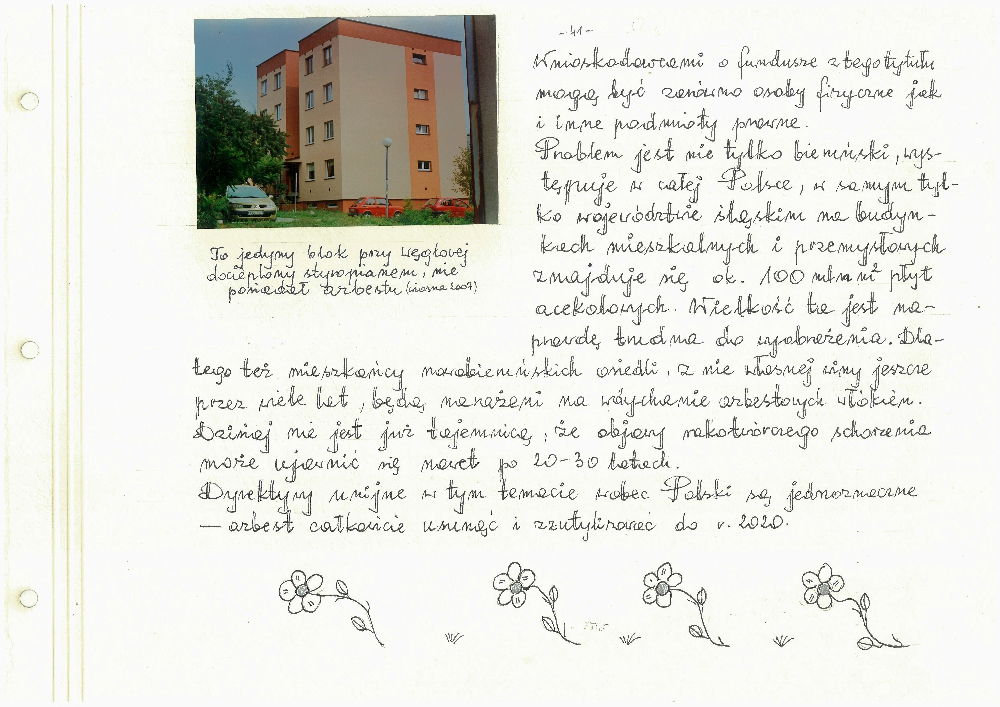 -41-
Wnioskodawcami o fundusze z tego tytułu
mogą być zarówno osoby fizyczne jak
i inne podmioty prawne.
Problem jest nie tylko bieruński, wys-
tępuje w całej Polsce, w samym tyl-
ko województwie śląskim na budyn-
kach mieszkalnych i przemysłowych
znajduje się ok. 100 mln m² płyt
acekolowych. Wielkość ta jest na-
prawdę trudna do wyobrażenia. Dla-
tego też mieszkańcy nowobieruńskich osiedli, z nie własnej winy jeszcze
przez wiele lat, będą narażeni na wdychanie arbestowych włókien.
Dzisiaj nie jest już tajemnicą, że objawy rakotwórczego schorzenia
może ujawnić się nawet po 20-30 latach.
Dyrektywy unijne w tym temacie wobec Polski są jednoznaczne
— arbest całkowicie usunąć i zzutylizować do r. 2020.
To jedyny blok przy Węglowej
docieplony styropianem, nie
posiadał arbestu (wiosna 2007)